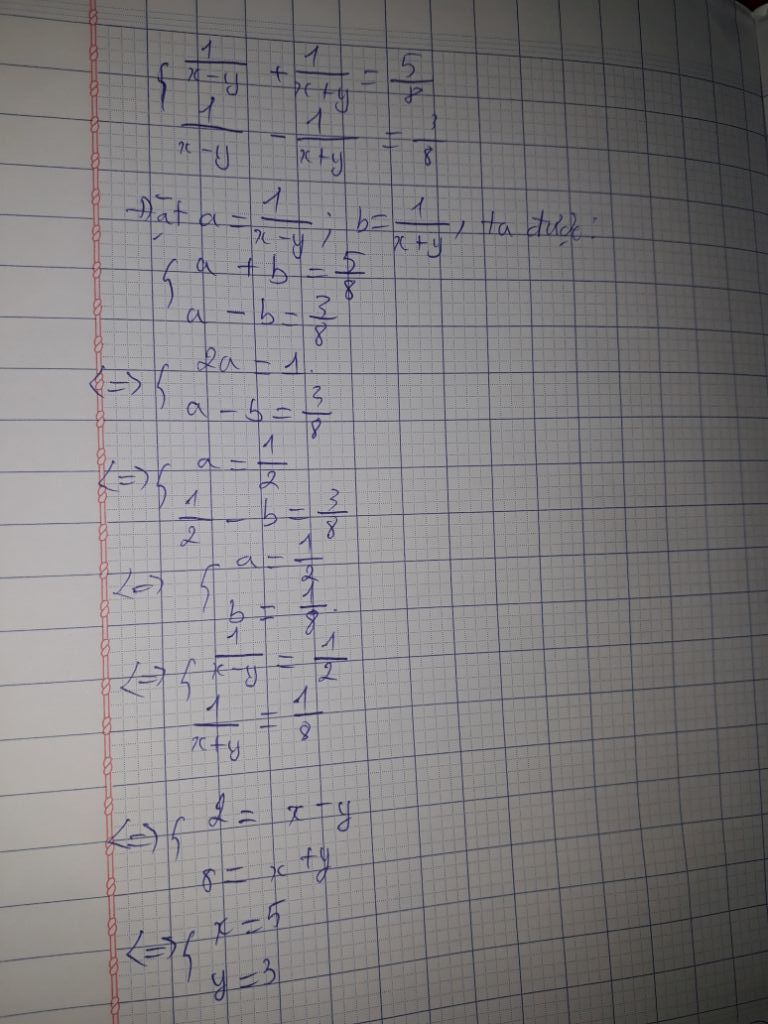 { 1/(x-y) + 1/(x+y) = 5/8
1/(x-y) - 1/(x+y) = 3/8
Đặt a = 1/(x-y) ; b = 1/(x+y), ta được:
{ a + b = 5/8
a - b = 3/8
<=> { 2a = 1.
a - b = 3/8
<=> { a = 1/2
1/2 - b = 3/8
<=> { a = 1/2
b = 1/8.
<=> { 1/(x-y) = 1/2
1/(x+y) = 1/8
<=> { 2 = x - y
8 = x + y
<=> { x = 5
y = 3